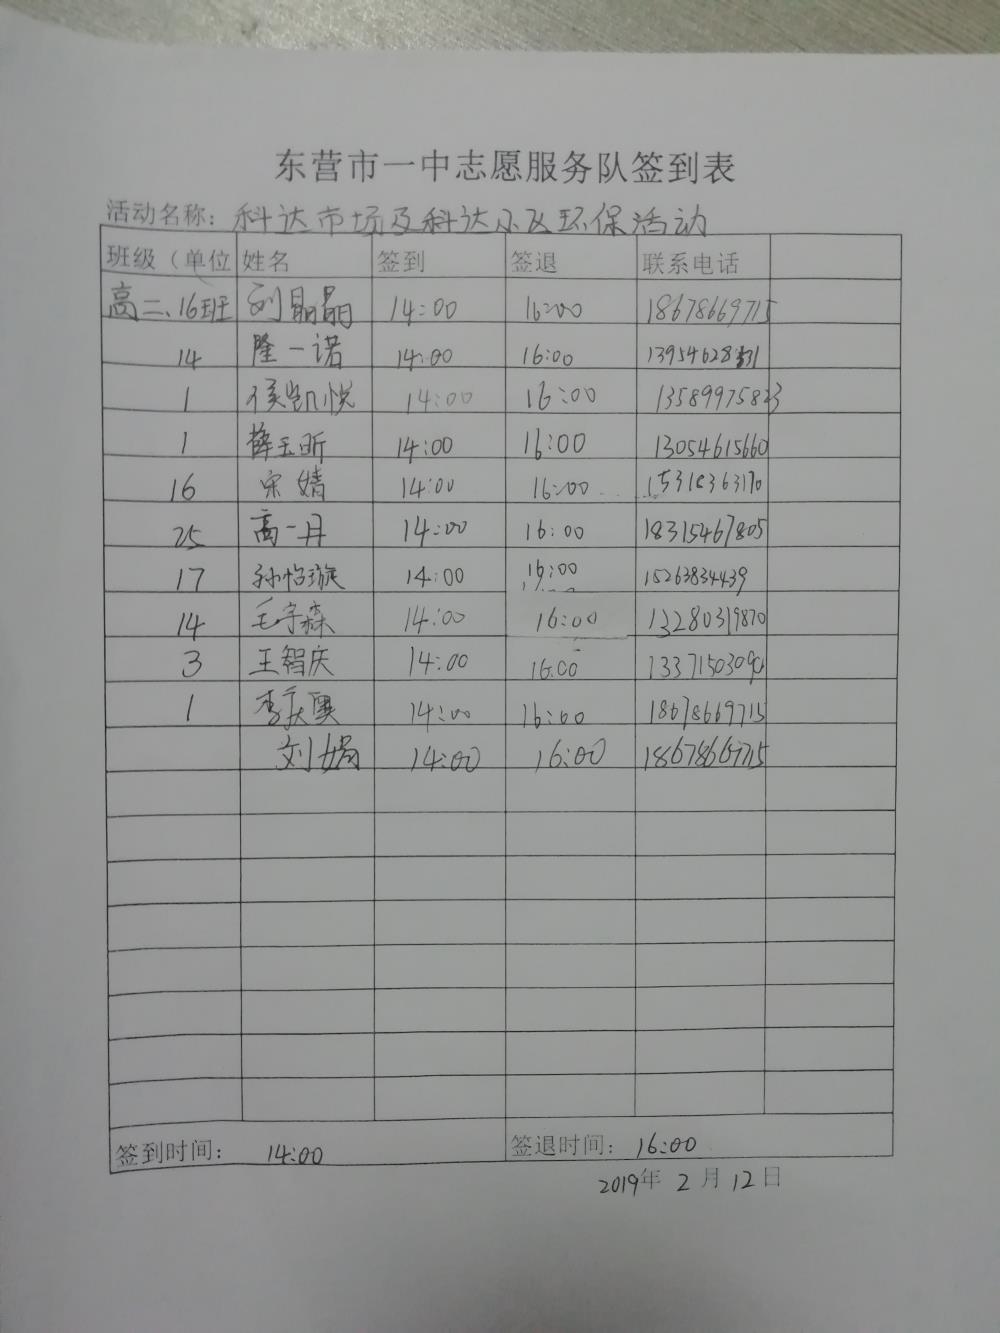 东营市一中志愿服务队签到表
活动名称：科达市场及科达小区环保活动
班级（单位 姓名 签到 签退 联系电话
高二、16班 刘晶晶 14:00 16:00 18678669715
14 隆一诺 14:00 16:00 13954628
1 侯凯悦 14:00 16:00 13589975823
1 薛玉昕 14:00 16:00 13054615660
16 宋婧 14:00 16:00 15318363170
25 高一丹 14:00 16:00 18315467805
17 孙怡璇 14:00 16:00 15263834439
14 毛宇森 14:00 16:00 13280319870
3 王智庆 14:00 16:00 13371503090
1 李庆奥 14:00 16:00 18678669715
刘娟 14:00 16:00 18678669715
签到时间： 14:00 签退时间： 16:00
2019年 2 月 12 日